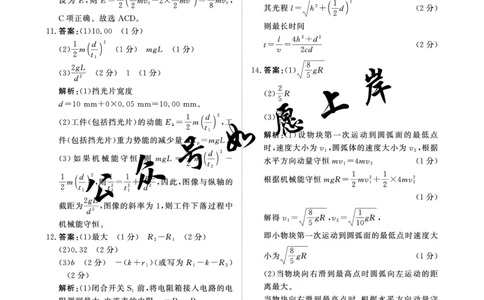 设为 E,则 E = 1/2 · m/2 v₀² − 1/2 × 2m v² = m/8 v₀²,
C项正确。故选ACD。
11.答案:(1)10.00 (1分)
(2) 1/2 m(d/t₁)² (1分) mgL (1分)
(3) 2gL/d² (2分) 1 (1分)
解析:(1)挡光片的宽度
d=10 mm+0×0.05 mm=10.00 mm。
(2)工件(包括挡光片)的动能 Eₖ = 1/2 m(d/t₁)²,工
件(包括挡光片)重力势能的减少量 =mgL
(3)如果机械能守恒,则 mgL =
1/2 m(d/t₁)²,因此,图像与纵轴的
截距为 2gL/d²,图像的斜率为1,则工件下落过程中
机械能守恒。
12.答案:(1)最大 (1分) R₂−R₁ (2分)
(2)0.32 (2分)
(3)b (2分) −(k+r₁)(或写为R₁−k−R₂)
(2分)
解析:(1)闭合开关S₁前,将电阻箱接入电路的电
其光程 l = √(h²+(1/2 d)²) (2分)
则最长时间
t = l/v = (4h²+d²)/2cd (2分)
14.答案:(1) √(8/5 gR)
(2) 2/5 R
(3)
解析:(1)设物块第一次运动到圆弧面的最低点
时,速度大小为 v₁,圆弧体的速度大小为 v₂,根据
水平方向动量守恒 mv₁=4mv₂ (1分)
根据机械能守恒 mgR = 1/2 mv₁² + 1/2 ×4mv₂²
(1分)
解得 v₁ = √(8/5 gR),v₂ = √(1/10 gR),
即小物块第一次运动到圆弧面的最低点时速度大
小为 √(8/5 gR) (1分)
(2)当物块向右滑到最高点时圆弧向左运动的距
离最大。
公众号如愿上岸